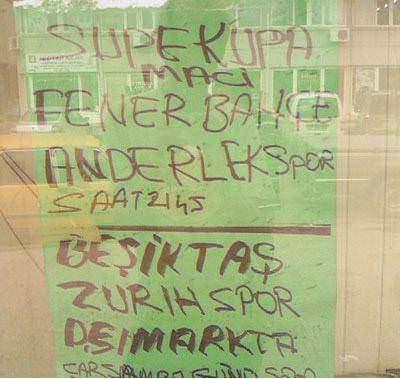 SUPEKUPA
MACI
FENERBAHÇE
ANDERLEKSPOR
SAAT 2145
BEŞİKTAŞ
ZURIHSPOR
DŞİMARKTA